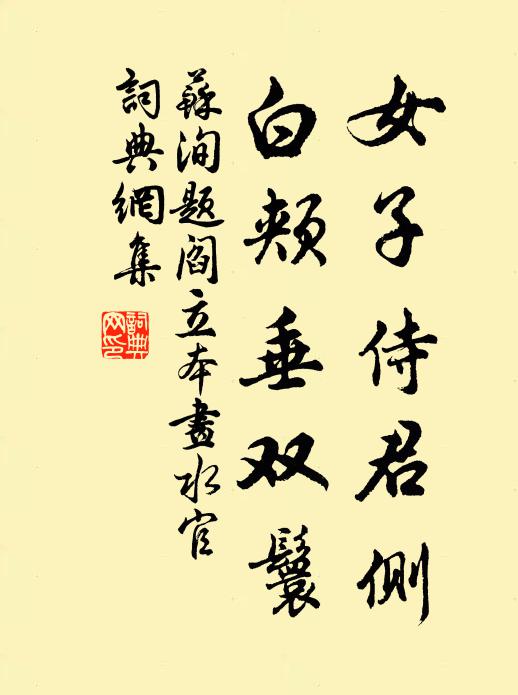 女子侍君側
白頰垂双鬟
蘇洵题閻立本畫水官
詞典網集
詞典网印